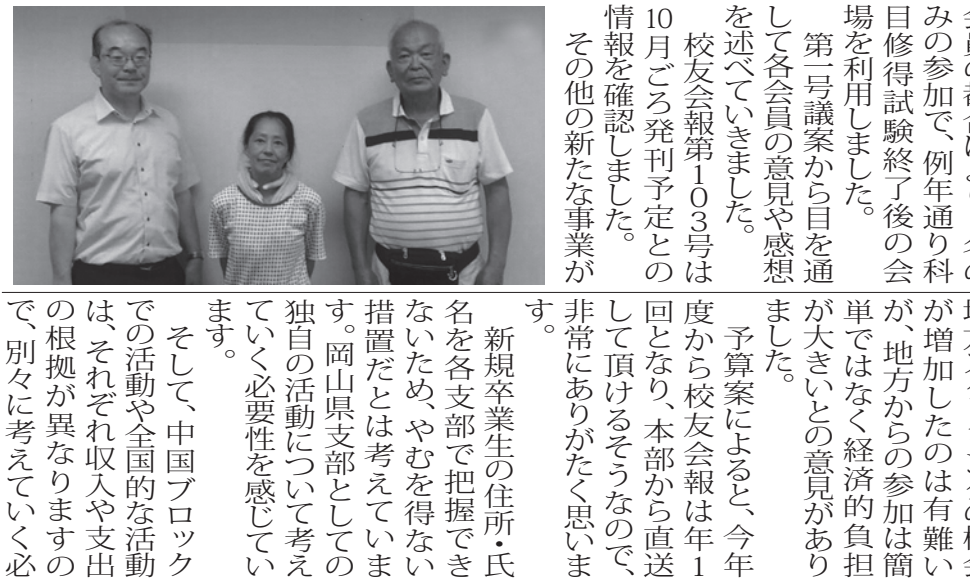 みの参加で、例年通り科
目修得試験終了後の会
場を利用しました。
第一号議案から目を通
して各会員の意見や感想
を述べていきました。
校友会報第１０３号は
10月ごろ発刊予定との
情報を確認しました。
その他の新たな事業が
が増加したのは有難い
が、地方からの参加は簡
単ではなく経済的負担
が大きいとの意見があり
ました。
予算案によると、今年
度から校友会報は年１
回となり、本部から直送
して頂けるそうなので、
非常にありがたく思いま
す。
新規卒業生の住所・氏
名を各支部で把握でき
ないため、やむを得ない
措置だとは考えていま
す。岡山県支部としての
独自の活動について考え
ていく必要性を感じてい
ます。
そして、中国ブロック
での活動や全国的な活動
は、それぞれ収入や支出
の根拠が異なりますの
で、別々に考えていく必